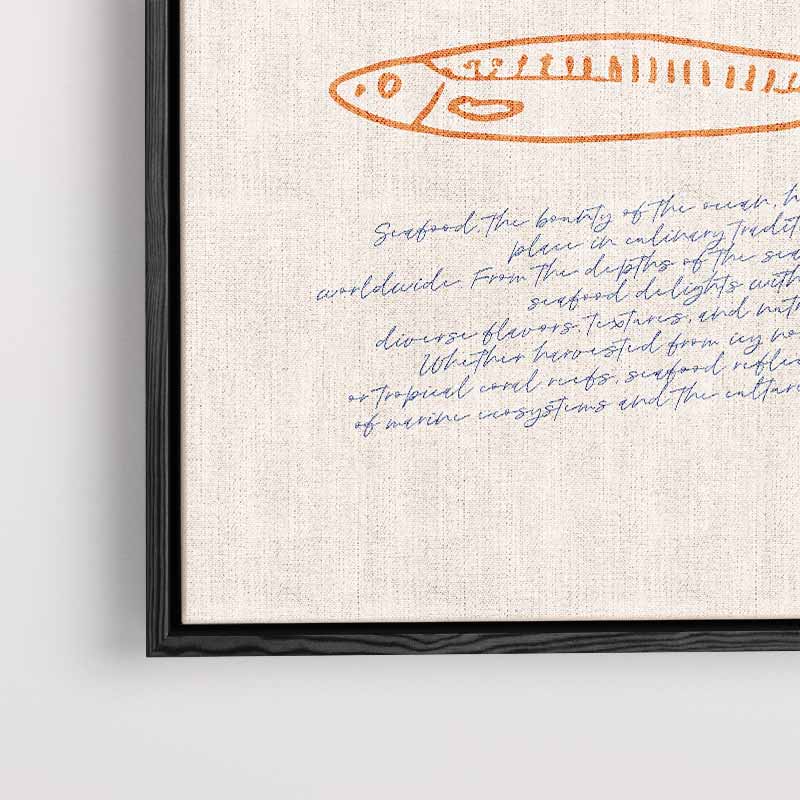 Seafood, the bounty of the ocean, h
place in culinary tradit
worldwide. From the depths of the sea
seafood delights with
diverse flavors, textures, and nutr
Whether harvested from icy no
or tropical coral reefs, seafood reflec
of marine ecosystems and the culture